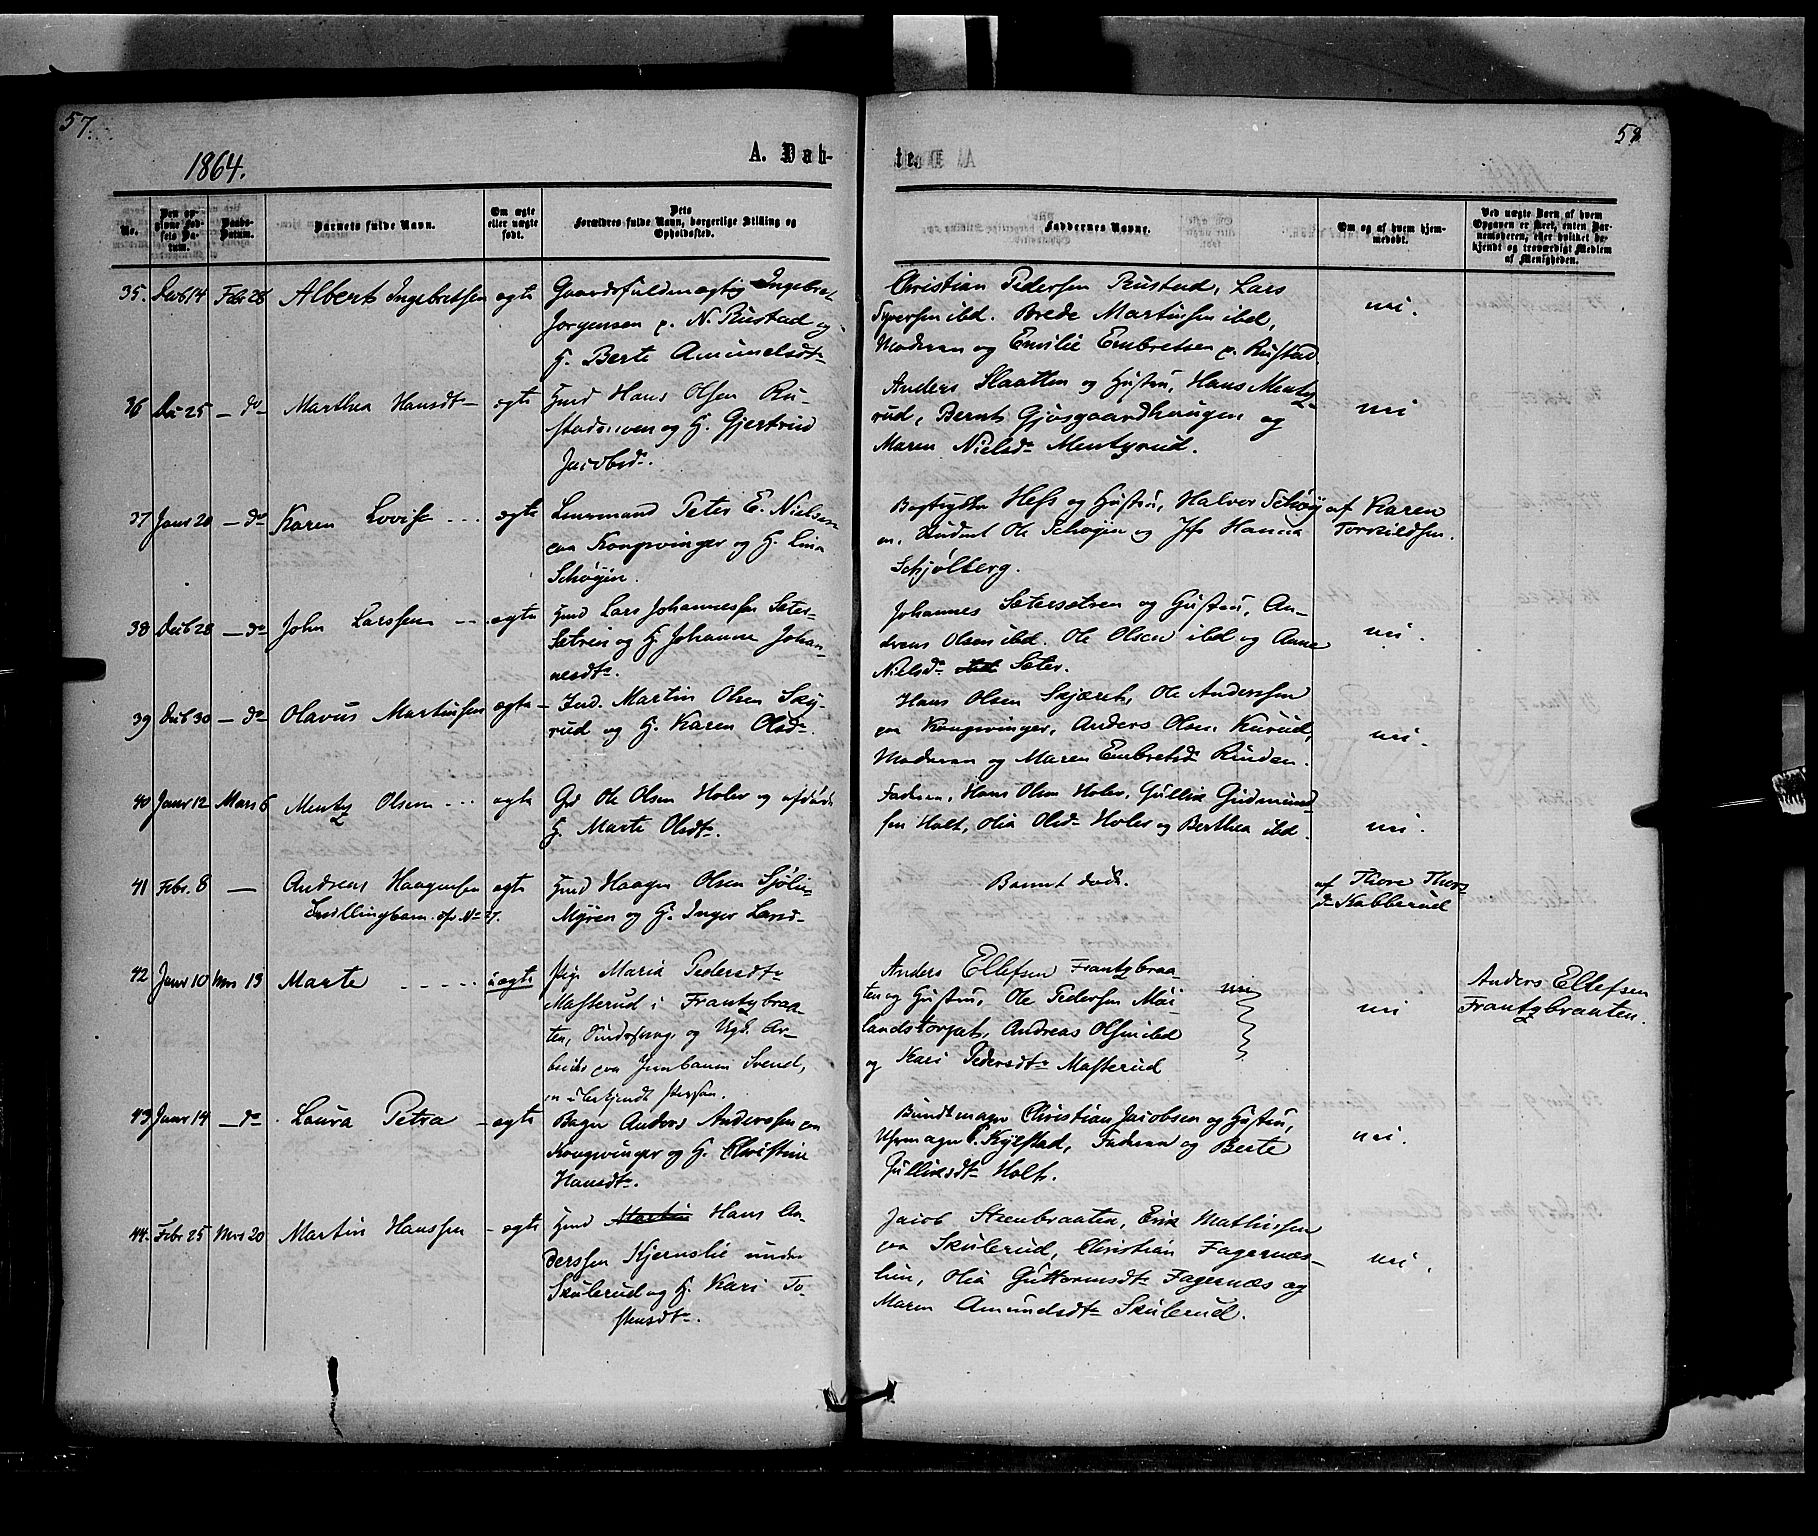 57.
58
1864.
A. Døb-
te.
No.
Den opgivne Fødsels Datum.
Daabs-Datum.
Barnets fulde Navn.
Om ægte eller uægte født.
Dets Forældres fulde Navn, borgerlige Stilling og Opholdssted.
Faddernes Navne.
Om og af hvem hjemmedøbt.
Ved uægte Børn af hvem Opgaven er skeet, enten Barnemoderen, eller hvilket bekjendt og troværdigt Medlem af Menigheden.
35. Decb 14 Febr 28 Albert Ingebretsen ægte
Gaardsfuldmægtig Ingebret
Jørgensen p. N. Rustad og
H. Berte Amundsdtr
Christian Pedersen Rustad, Lars
Syversen ibd. Brede Martinsen ibd,
Moderen og Emilie Embretsen p. Rustad.
nei.
36 Dec 25 – do – Marthea Hansdtr – ægte
Hmd Hans Olsen Ru-
stadsmoen og H. Gjertrud
Jacobsd.
Anders Slaatten og Hustru, Hans Mentz-
rud, Bernt Gjøsgaardhaugen og
Maren Nielsdr Mentzrud.
nei
37 Janr 20 – do Karen Lovise ... ægte
Lensmand Peter E. Nielsen
paa Kongsvinger og H. Lina
Schøyen.
Hess og Hustru, Halvor Schøy-
en, Student Ole Schøyen og Jfr Hanna
Schjølberg.
af Karen
Torkildsen.
38 Decb 28 – do John Larssen ægte
Hmd Lars Johannessen Seter-
Setren og H. Johanne Johan-
nesdtr.
Johannes Setersetren og Hustru, An-
dreas Olsen ibd. Ole Olsen ibd og Anne
Nielsdr ibd Seter.
nei.
39 Decb 30 – do Olavus Martinsen ægte –
Ind. Martin Olsen Sky-
rud og H. Karen Olsdr.
Hans Olsen Skjæret, Ole Anderssen
paa Kongsvinger, Anders Olsen Kurud,
Moderen og Maren Embretsdr Rinden.
nei.
40 Janr 12 Mars 6 Mentz Olsen ... ægte
Gr Ole Olsen Holer og afdøde
H. Marte Olsdtr.
Faderen, Hans Olsen Holer, Gullik Gudmund-
sen Holt, Olia Olsdr Holer og Berthea ibd.
nei.
41 Febr. 8 — Andreas Haagensen ægte
Tvillingbarn
Hmd Haagen Olsen Sjøli-
Myren og H. Inger Larsd
Barnet død.
af Thore Thors-
dr Kabberud
42 Janr 10 Mrs 13 Marte ..... uægte
Pige Maria Pedersdtr
Masterud i Frantzbraa-
ten, og Ugk. Ar-
beider paa Jernbanen Svend,
en ubekjendt Person.
Anders Ellefsen Frantzbraa-
ten og Hustru, Ole Pedersen Moi-
landstorpet, Andreas Olsen ibd
og Kari Pedersdtr Masterud
nei
nei
Anders Ellefsen
Frantzbraaten.
43 Janr 14 – do . Laura Petra – ægte
Bager Anders Anderssen paa
Kongsvinger og H. Christine
Hansdtr.
Bundtmager Christian Jacobsen og Hustru,
Uhrmager Kylstad, Faderen og Berte
Gulliksdtr Holt.
nei.
44. Febr 25 Mrs 20 Martin Hanssen – ægte
Hmd Martin Hans An-
derssen Kjernslie under
Skulerud og H. Kari To-
stensdtr.
Jacob Steenbraaten, Erik Mathissen
paa Skulerud, Christian Fagernæs-
lien, Olia Guttormsdtr Fagernæs og
Maren Amundsdtr Skulerud.
nei.